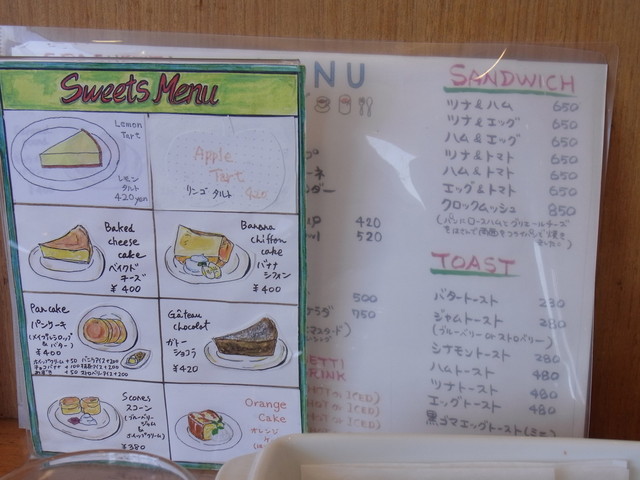 Sweets Menu
Lemon
Tart
レモン
タルト
420yen
Apple
Tart
リンゴ タルト 420
Baked
cheese
cake
ベイクド
チーズ
¥400
Banana
chiffon
cake
バナナ
シフォン
¥400
Pancake
パンケーキ
(メイプルシロップ
& バター)
¥400
Gâteau
chocolat
ガトー
ショコラ
¥420
Scones
スコーン
(ブルーベリー
ジャム
&
ホイップクリーム)
¥380
Orange
Cake
オレンジ
NU
420
520
500
750
SANDWICH
ツナ&ハム 650
ツナ&エッグ 650
ハム&エッグ 650
ツナ&トマト 650
ハム&トマト 650
エッグ&トマト 650
クロックムッシュ 850
TOAST
バタートースト 230
ジャムトースト 280
(ブルーベリー or ストロベリー)
シナモントースト 280
ハムトースト 480
ツナトースト 480
エッグトースト 480
黒ゴマエッグトースト